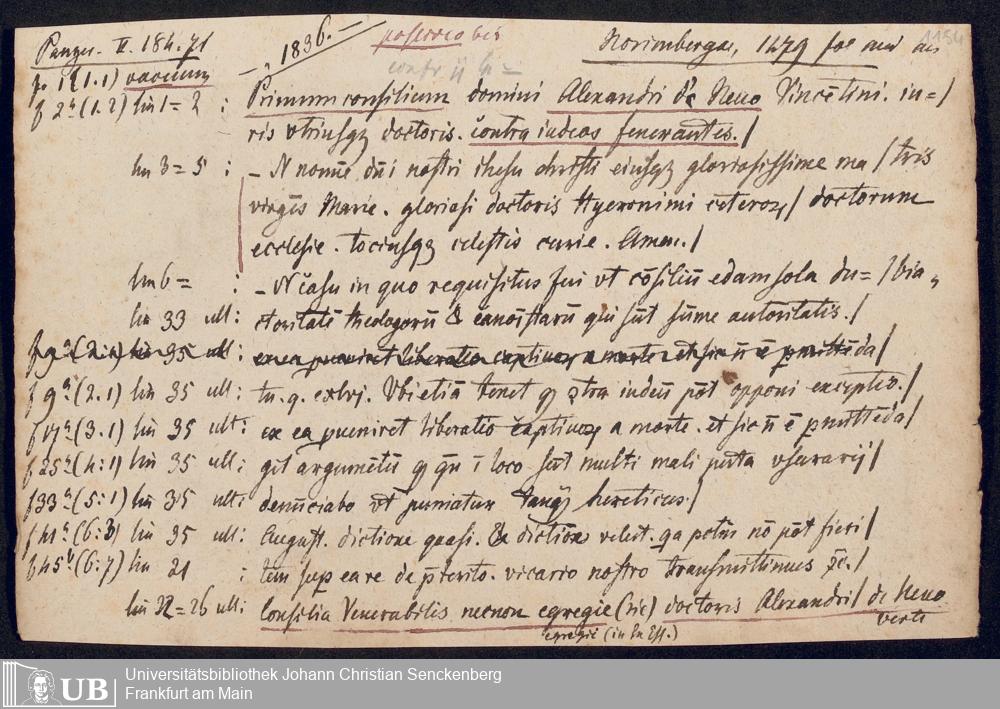 Panzer. II. 184. 71 — 1836. — Norimbergae, 1479 fol
f. 1 (1.1) vacuum
f 2ᵃ (1.2) lin 1=2 : Primum consilium domini Alexandri de Neuo Vincētini. iu=/
ris vtriusqꝫ doctoris. contra iudeos fenerantes./
lin 3=5 : – N nomīe dn̄i nostri ihesu christi eiusqꝫ gloriosissime ma/tris
virgīs Marie. gloriosi doctoris Hyeronimi ceteroꝝ/ doctorum
ecclesie. tociusqꝫ celestis curie. Amen./
lin 6= : – N casu in quo requisitus fui vt cōsiliū edam sola du=/bia
lin 33 ult: ctoritatē theologorū & canōistarū qui sūt sūme autoritatis./
f 9ᵃ (2.1) lin 35 ult: ex ea pueniret liberatio captiuoꝝ a morte et sic nō ē pmittēda/
f 9ᵃ (2.1) lin 35 ult: tu. q. cxlvj. Vbi etiā tenet qꝫ ꝯtra iudeū pōt opponi exceptio./
f 17ᵃ (3.1) lin 35 ult: ex ea pueniret liberatio captiuoꝝ a morte. et sic nō ē pmittēda/
f 25ᵃ (4:1) lin 35 ult: git argumētū qꝫ qn̄ ī loco sūt multi mali puta vsurarij/
f 33ᵃ (5:1) lin 35 ult: denūciabo vt puniatur tanqꝫ hereticus./
f 41ᵃ (6:3) lin 35 ult: August. dictione quasi. & dictione velut. qa potius nō pōt fieri/
f 45ᵇ (6:7) lin 21 : tem sup ea re de pterito. vicario nostro transmittimus ꝛc./
lin 22=26 ult: Consilia Venerabilis necnon egregie (sic) doctoris Alexandri/ de Neuo
egregii (in Ex Eff.) verte
UB Universitätsbibliothek Johann Christian Senckenberg
Frankfurt am Main